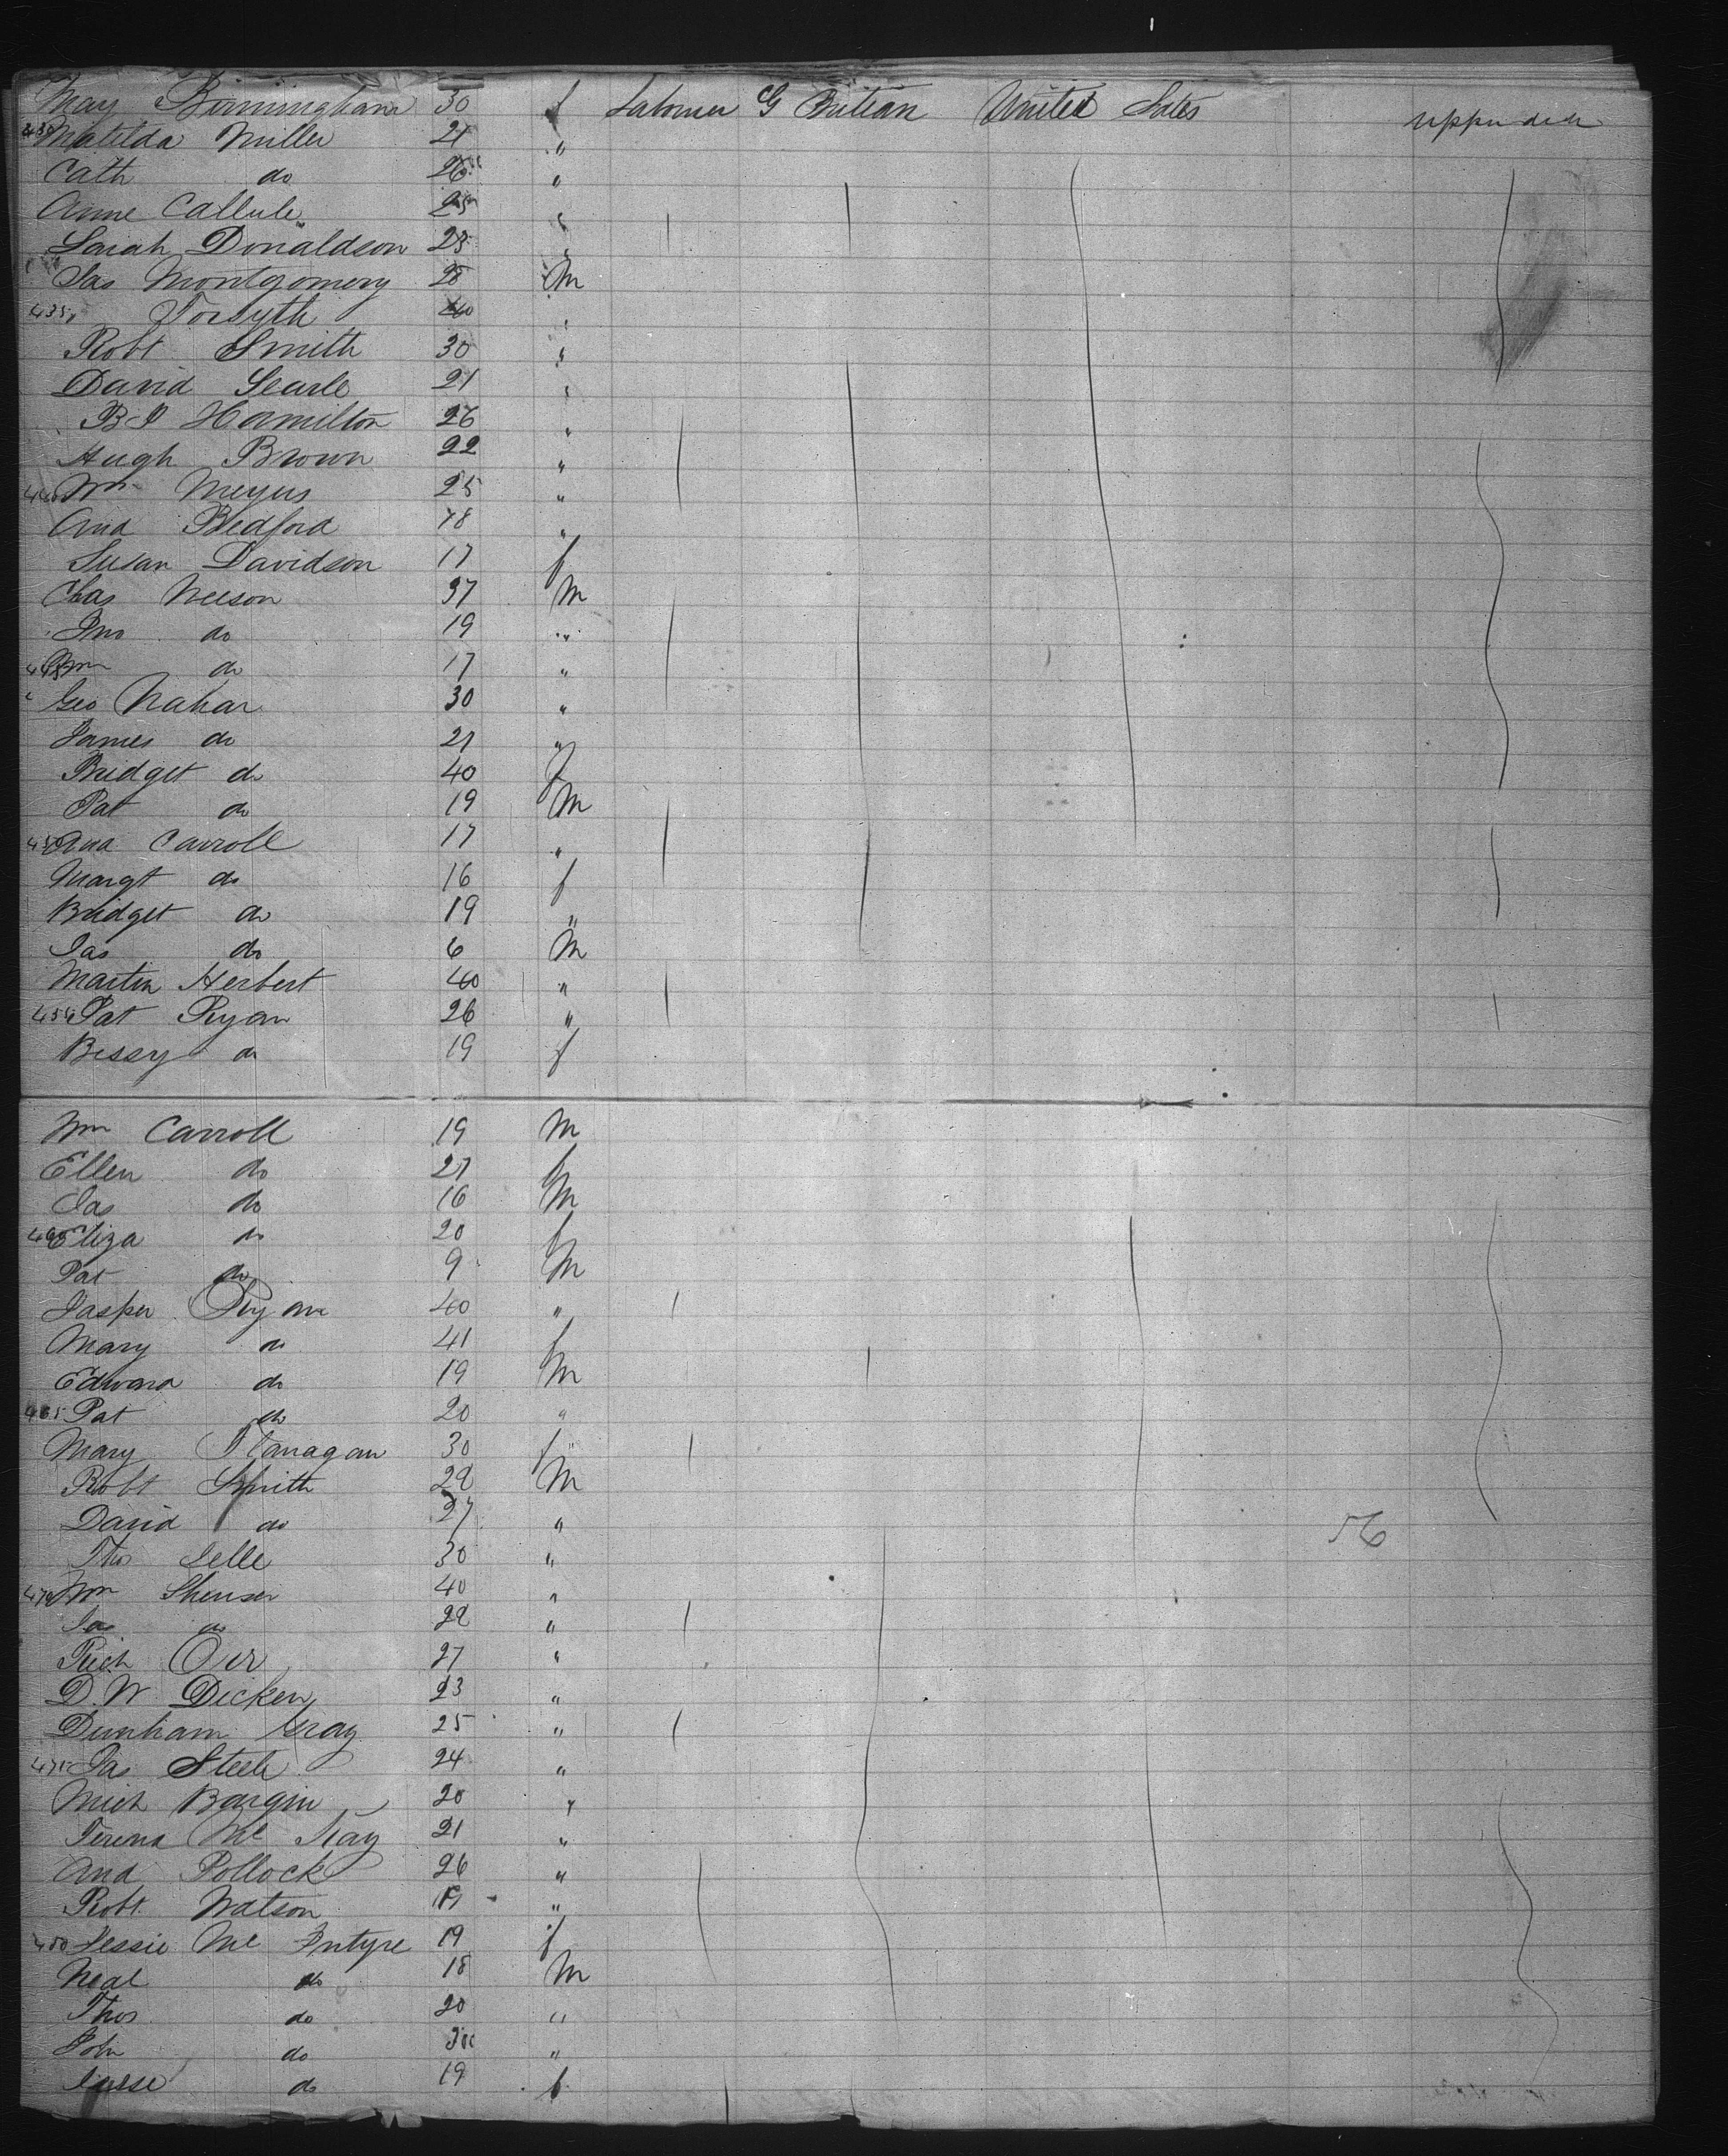 May Birmingham 30 f Laborer G Britian United States upper deck
430 Matilda Miller 21 "
Cath do 26 "
Anne 25 "
Sarah Donaldson 23 "
Jas Montgomery 28 M
435 Forsyth 40 "
Robt Smith 30 "
David Searle 21 "
Hamilton 26 "
Hugh Brown 22 "
440 Wm Meyers 25 "
And Bedford 18 "
Susan Davidson 17 f
Chas Neeson 37 M
Jno do 19 "
445 Wm do 17 "
Geo Nahar 30 "
James do 21 "
Bridget do 40 f
Pat do 19 M
450 And Carroll 17 "
Margt do 16 f
Bridget do 19 "
Jas do 6 M
Martin Herbert 40 "
455 Pat Ryan 26 "
Bessy do 19 f
Wm Carroll 19 M
Ellen do 21 f
Jas do 16 M
460 Eliza do 20 f
Pat do 9 M
Jasper Ryan 40 "
Mary do 41 f
Edward do 19 M
465 Pat do 20 "
Mary Flanagan 30 f
Robt Smith 22 M
David do 27 "
56
Thos Lelle 30 "
470 Wm 40 "
Jas do 22 "
Rich Orr 27 "
D. W. Dicken 23 "
Dunham Gray 25 "
475 Jas Steele 24 "
Mich Bargin 20 "
Mc Kay 21 "
And Pollock 26 "
Robt Watson 19 "
480 Jessie Mc Intyre 19 f
Neal do 18 M
Thos do 20 "
John do "
do 19 f